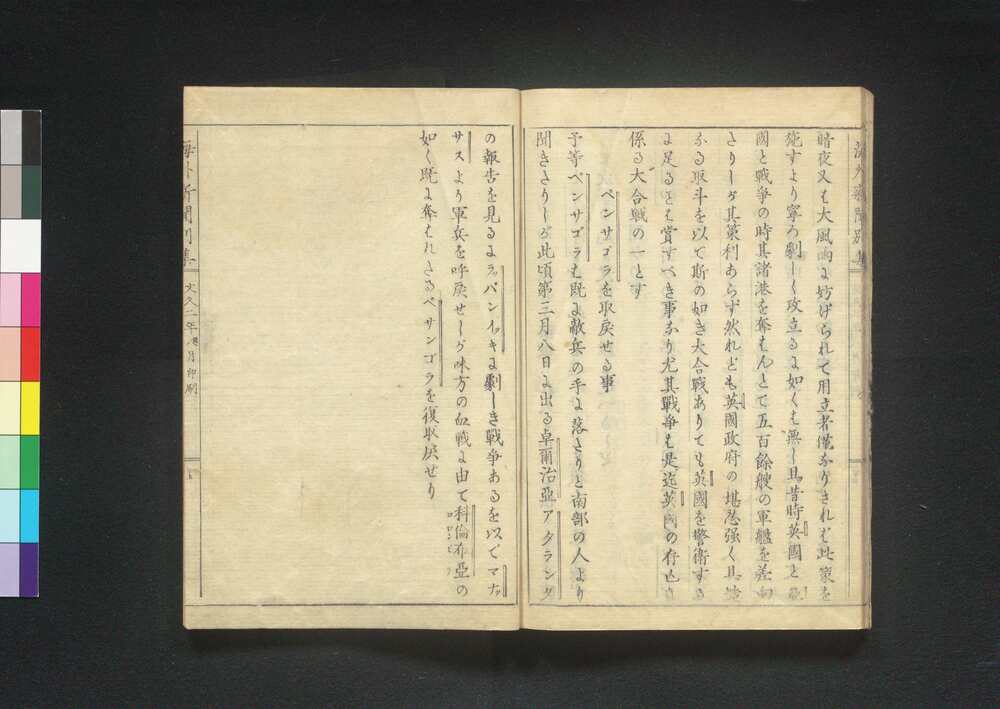 暗夜又は大風雨に妨げられて用立者僅なりされば此策を
施すより寧ろ劇しく攻立るに如くは無し且昔時英國と
國と戦爭の時其諸港を奪はんとて五百餘艘の軍艦を差向
さりしが其策利あらず然れども英國政府の堪忍强く且
なる取斗を以て斯の如き大合戦ありても英國を警衛する
に足るとも賞すべき事なり尤其戰爭も是迄英國の存亡に
係る大合戦の一とす
ペンサゴラを取戻せる事
予等ペンサゴラも既に敵兵の手に落さりと南部の人より
聞きさりしが此頃第三月八日に出る卓爾治亞アタランダ
の報告を見るにラッパンイッキに劇しき戰爭あるを以てマナッ
サスより軍兵を呼戻せしが味方の血戰に由て科倫布亞の
ロロンビア
如く既に奪はれさるペサンゴラを復取戻せり
海外新聞別集
海外新聞別集
文久二年
月印刷